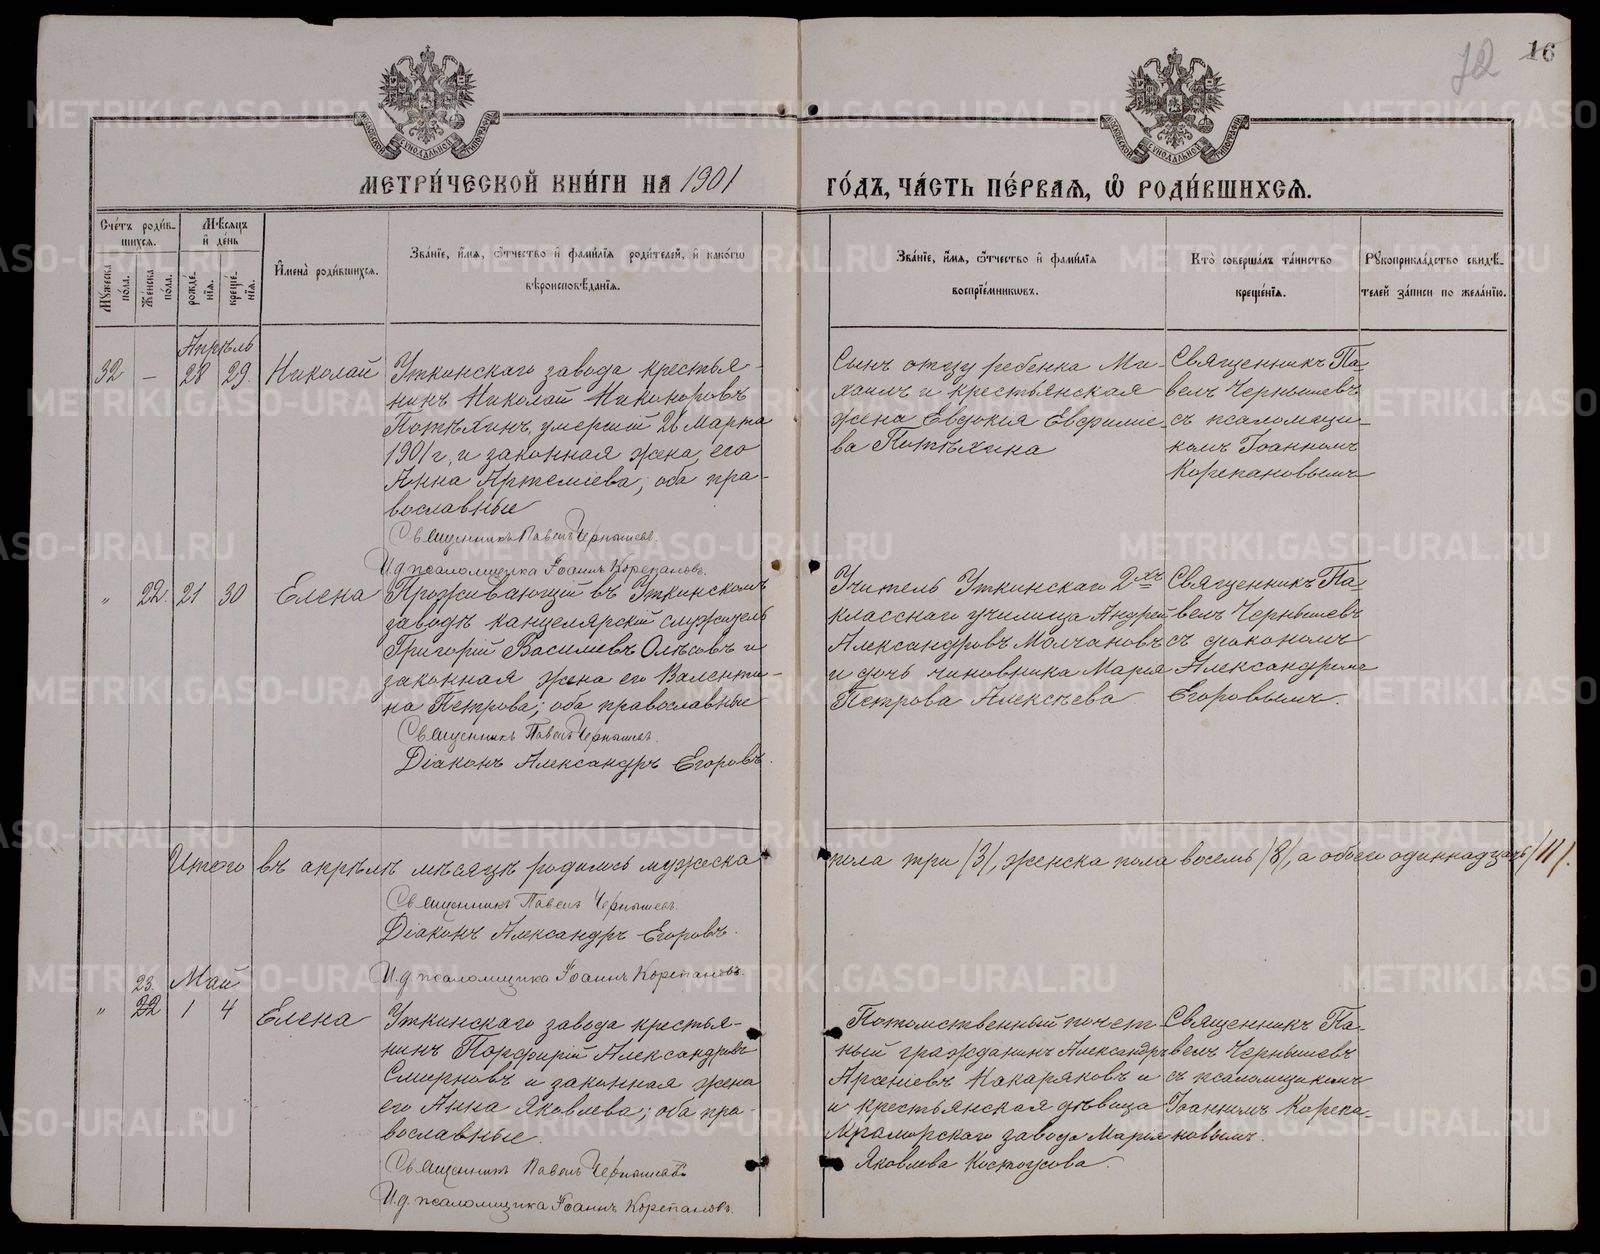 16
МЕТРИ́ЧЕСКОЙ КНИ́ГИ НА 1901
ГО́ДЪ, ЧА́СТЬ ПЕ́РВАѦ, Ѽ РОДИ́ВШИХСѦ.
Сче́тъ роди́в-
шихся.
Мѣсяцъ
и҆ де́нь
Мꙋжеска по́ла.
Же́нска по́ла.
рожде́нїя.
креще́нїя.
И҆мена̀ роди́вшихся.
Зва́нїе, и҆́мя, ѻ҆́тчество и҆ фами́лїя роди́телей, и҆ како́гѡ
вѣроисповѣ́данїя.
Зва́нїе, и҆́мя, ѻ҆́тчество и҆ фами́лїя
воспрїе́мниковъ.
Кто̀ соверша́лъ та́инство
креще́нїя.
Рꙋкоприкла́дство свидѣ́-
телей за́писи по жела́нїю.
Апрѣль
32 — 28 29. Николай
Уткинскаго завода крестья-
нинъ Николай Никоноровъ
Потѣхинъ, умерший 26 Марта
1901 г., и законная жена его
Анна Артемiева; оба пра-
вославные
Священникъ Павелъ Чернышевъ.
И.д. псаломщика Іоаннъ Корепановъ.
Сынъ отцу ребенка Ми-
хаилъ и крестьянская
жена Евдокiя Евфимiе-
ва Потѣхина
Священникъ Па-
велъ Чернышевъ
съ псаломщи-
комъ Іоанномъ
Корепановымъ
" 22. 21 30 Елена
Проживающiй въ Уткинскомъ
заводѣ канцелярскiй служитель
Григорiй Василiевъ Олѣсовъ и
законная жена его Валенти-
на Петрова; оба православные
Священникъ Павелъ Чернышевъ.
Дiаконъ Александръ Егоровъ.
Учитель Уткинскаго 2хъ
класснаго училища Андрей
Александровъ Молчановъ
и дочь чиновника Марiя
Петрова Алексѣева
Священникъ Па-
велъ Чернышевъ
съ дiакономъ
Александромъ
Егоровымъ.
Итого въ апрѣлѣ мѣсяцѣ родилось мужеска
пола три /3/, женска пола восемь /8/, а обоего одиннадцать /11/.
Священникъ Павелъ Чернышевъ.
Дiаконъ Александръ Егоровъ.
И.д. псаломщика Іоаннъ Корепановъ.
Май
23.
" 22 1 4 Елена
Уткинскаго завода крестья-
нинъ Порфирiй Александровъ
Смирновъ и законная жена
его Анна Яковлева; оба пра-
вославные.
Священникъ Павелъ Чернышевъ
И.д. псаломщика Іоаннъ Корепановъ.
Потомственный почет-
ный гражданинъ Александръ
Арсенiевъ Какаряковъ и
и крестьянская дѣвица
Мраморскаго завода Марiя
Яковлева Костоусова.
Священникъ Па-
велъ Чернышевъ
съ псаломщикомъ
Іоанномъ Корепа-
новымъ.
METRIKI.GASO-URAL.RU